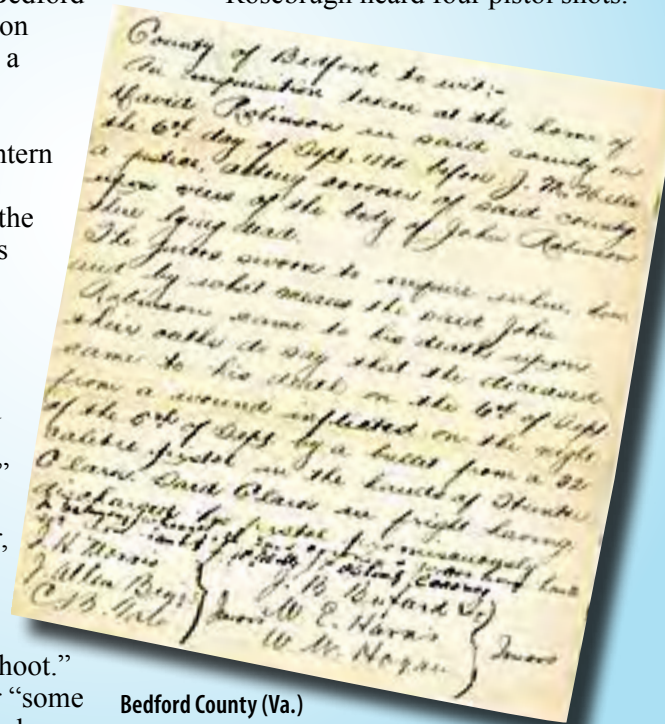 Bedford
Rosebrugh heard four pistol shots.
on
a
ntern
the
s
”
,
hoot.”
“some
County of Bedford to wit:-
An inquisition taken at the home of
David Robinson in said county on
the 6th day of Sept. before J. M.
a justice, acting coroner of said county
upon view of the body of John Robinson
there lying dead.
The Jurors sworn to inquire when, how
and by what means the said John
Robinson came to his death, upon
their oaths do say that the deceased
came to his death on the 6th of Sept.
from a wound inflicted on the night
of the 5th of Sept by a bullet from a 32
calibre pistol in the hands of
Clark. Said Clark in fright having
discharged his pistol promiscuously
acting Coroner
J. H. Morris
J. B. Buford
J. Allen Biggs
Jurors
W. E. Harris
Jurors
C. S. B.
W. W. Hogan
Bedford County (Va.)